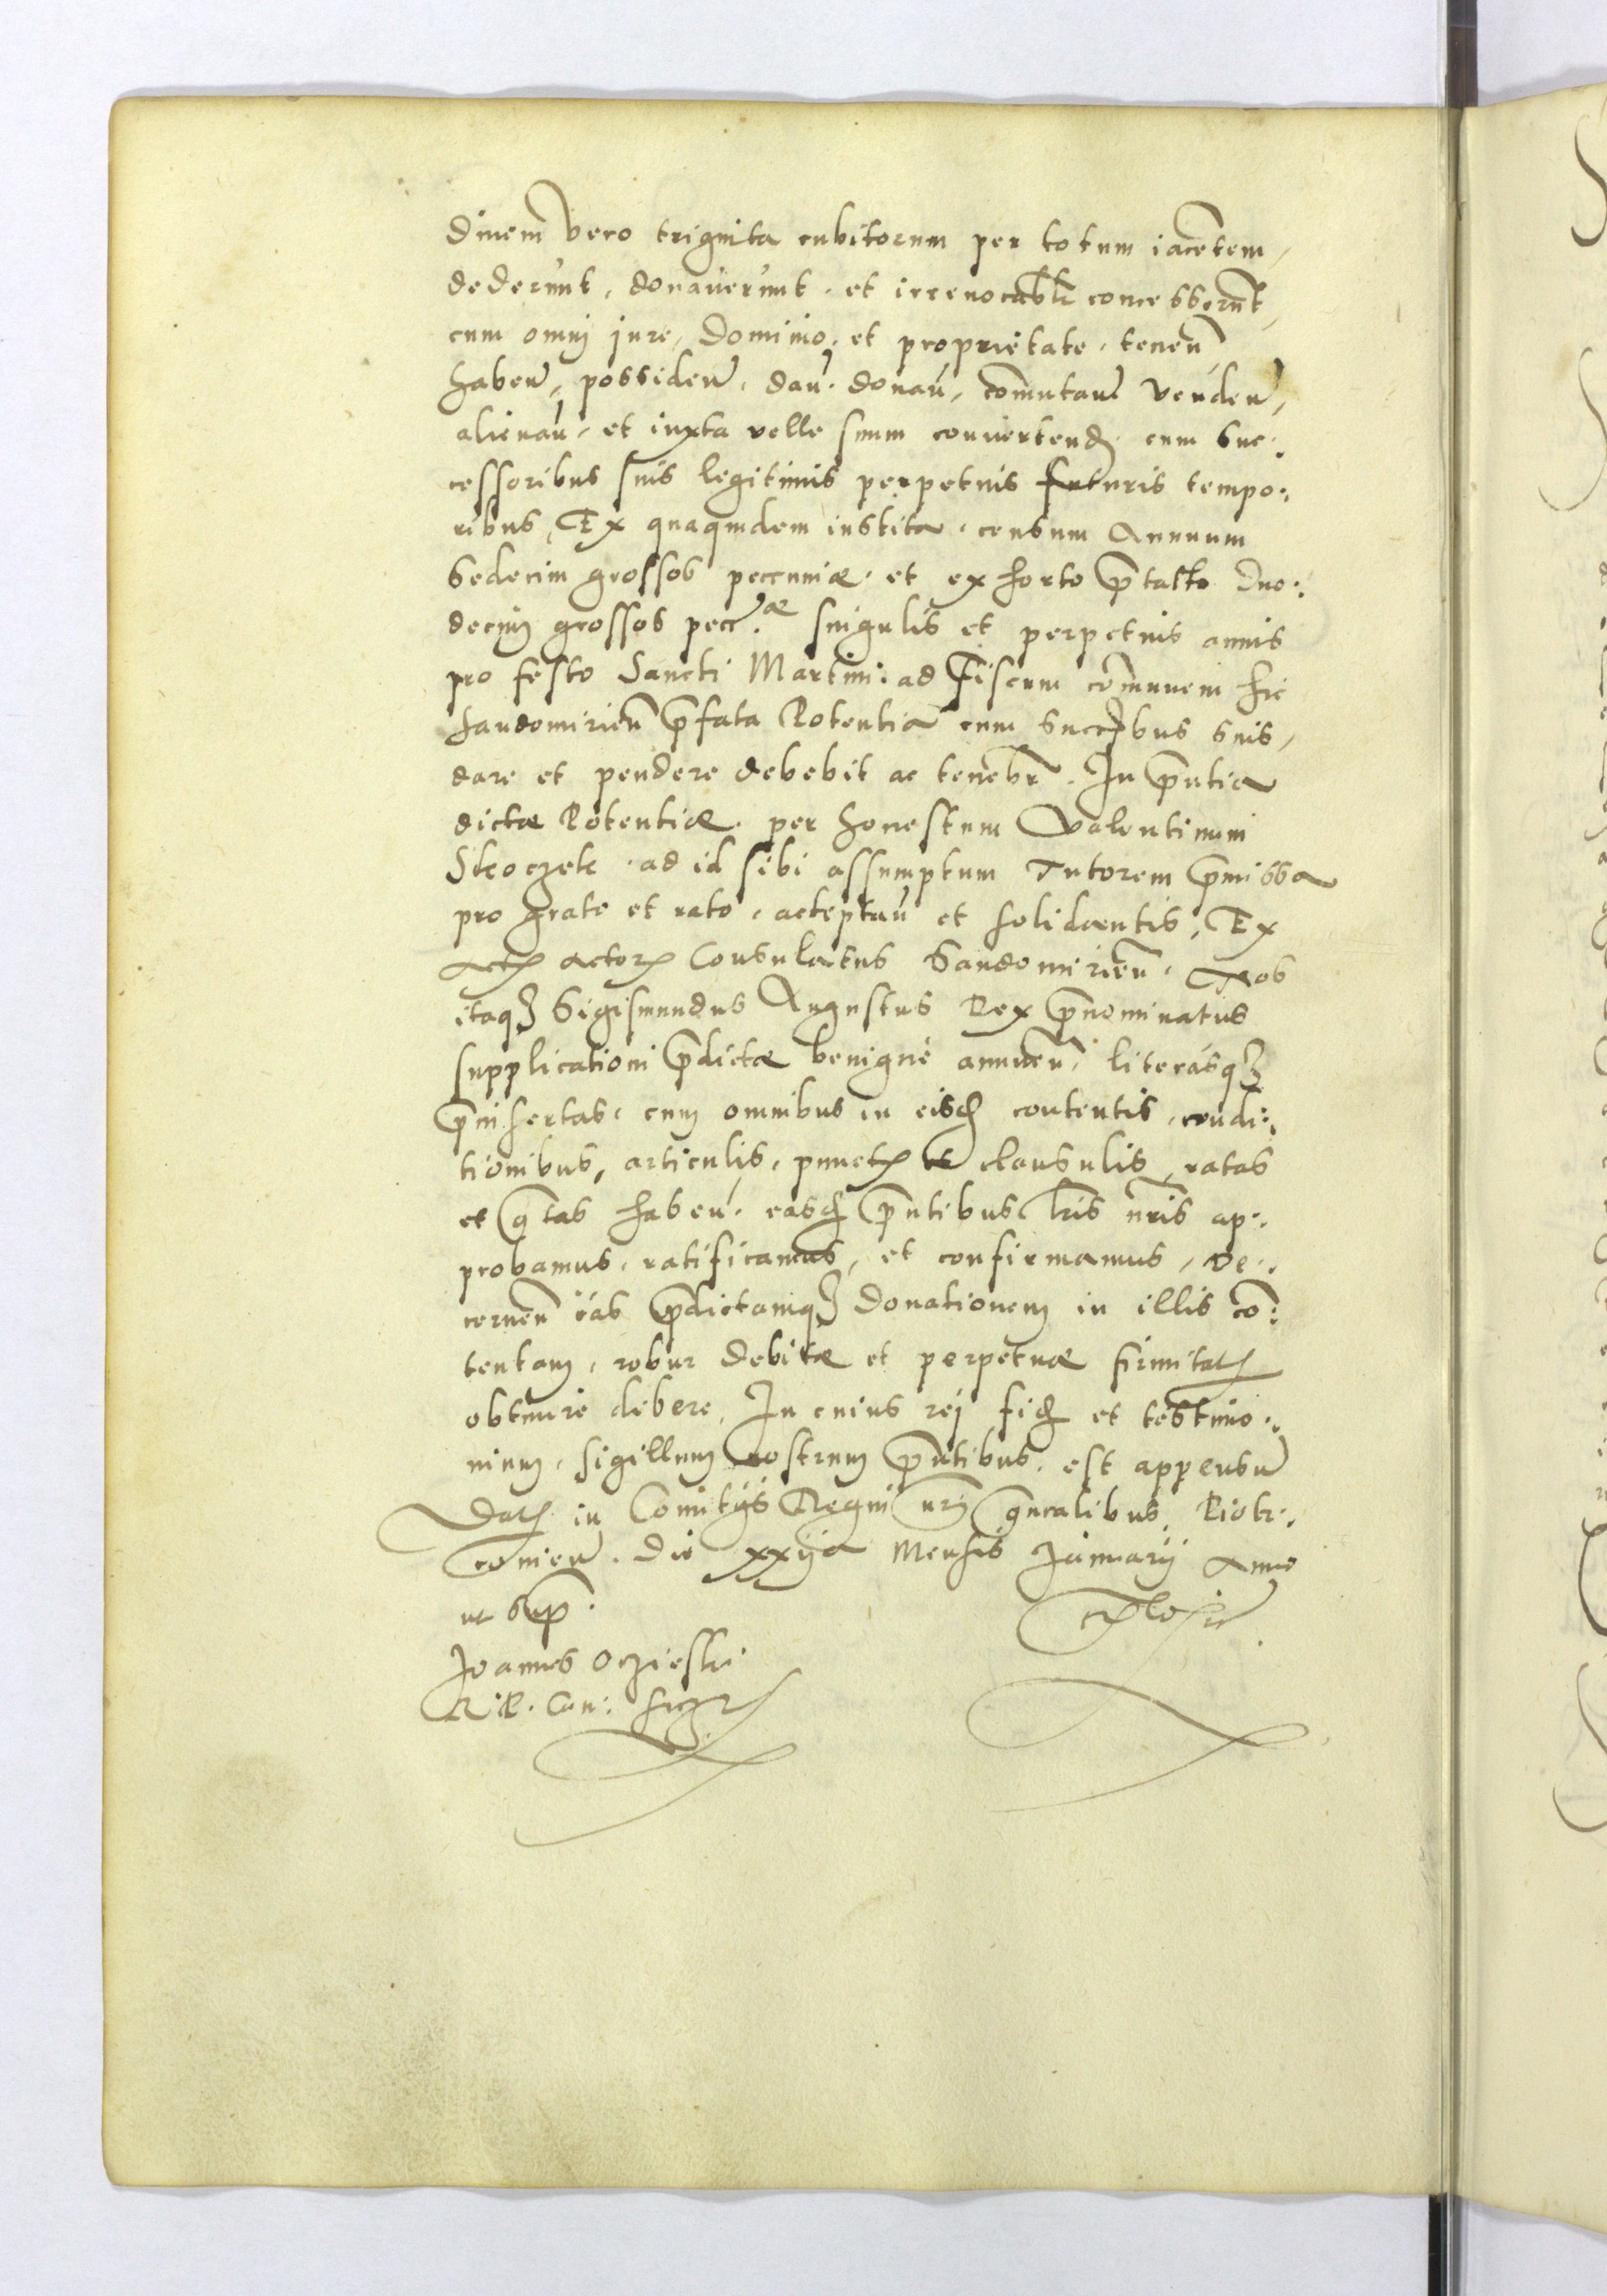 dinem vero triginta cubitorum per totum iacẽtem,
dederunt, donaverunt, et irrevocabłr concesserunt,
cum omnj jure, Dominio, et proprietate, teneñ
habeñ, possideñ, dañ, donañ, com̃utañ vendeñ,
alienañ, et iuxta velle suum convertend̃ cum suc:
cessoribus suis legitimis perpetuis futuris tempo:
ribus, Ex quaquidem instita, censum Annuum
Sedecim grossos peccuniæ, et ex horto p̃tacto duo:
decim grossos pecc:æ singulis et perpetuis annis
pro festo Sancti Martini: ad Fiscum com̃unem hic
Sandomirieñ p̃fata Potentia cum succ̃bus suis,
dare et pendere debebit ac tenebr̃. In p̃ntia
dictæ Potentiæ, per honestum Valentinum
Skoczek, ad id sibi assumptum Tutorem p̃missa
pro grato et rato, acceptañ et solidantis, Ex
Actis actorũ Consulatus Sandomirieñ. Nos
itaq̃ Sigismundus Augustus Rex p̃nominatus
supplicationi p̃dictæ benignè annueñ, literasq̃
p̃insertas, cum omnibus in eisd̃ contentis, condi:
tionibus, articulis, punctis et clausulis, ratas
et g̃tas habeñ, easd̃ p̃ntibus l̃ris nr̃is ap:
probamus, ratificamus, et confirmamus, De:
cerneñ eas p̃dictamq̃ Donationem in illis cõ:
tentam, robur debitæ et perpetuæ firmitatis
obtinere debere, In cuius rej fid̃ et testimo:
nium, sigillum nostrum p̃ntibus, est appensũ
Datũ in Comitijs Regni nr̃j gñralibus, Piotr:
covieñ. Die xxija Mensis Januarij Anno
ut sup̃.
Joannes Oczieski
R. P. Can: sscr̃